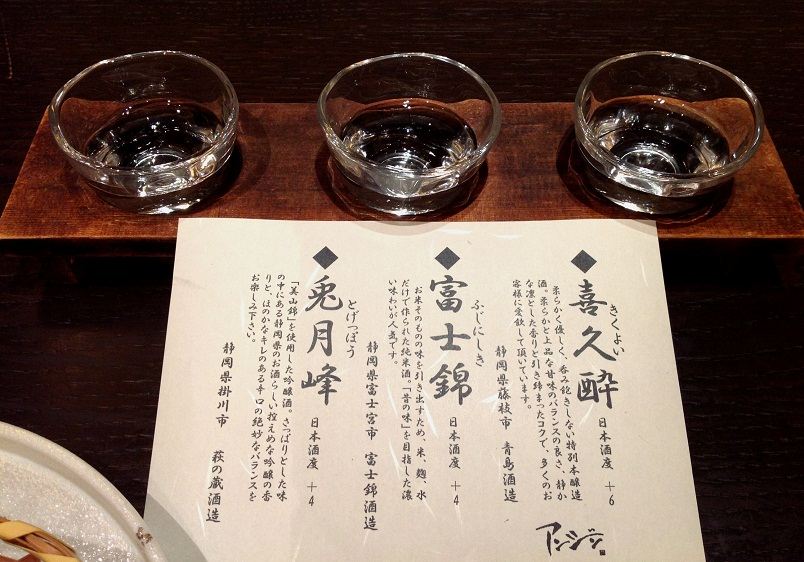 ◆喜久酔
きくよい
日本酒度 +6
柔らかく優しく、呑み飽きしない特別本醸造
酒。柔らかと上品な甘味のバランスの良さ、静か
な凛とした香りと引き締まったコクで、多くのお
客様に愛飲して頂いています。
静岡県藤枝市 青島酒造
◆富士錦
ふじにしき
日本酒度 +4
お米そのものの味を引き出すため、米、麹、水
だけで作られた純米酒。「昔の味」を目指した濃
い味わいが人気です。
静岡県富士宮市 富士錦酒造
◆兎月峰
とげっぽう
日本酒度 +4
「美山錦」を使用した吟醸酒。さっぱりとした味
の中にある静岡県のお酒らしい控えめな吟醸の香
りと、ほのかなキレのある辛口の絶妙なバランスを
お楽しみ下さい。
静岡県掛川市 萩の蔵酒造
アンジン